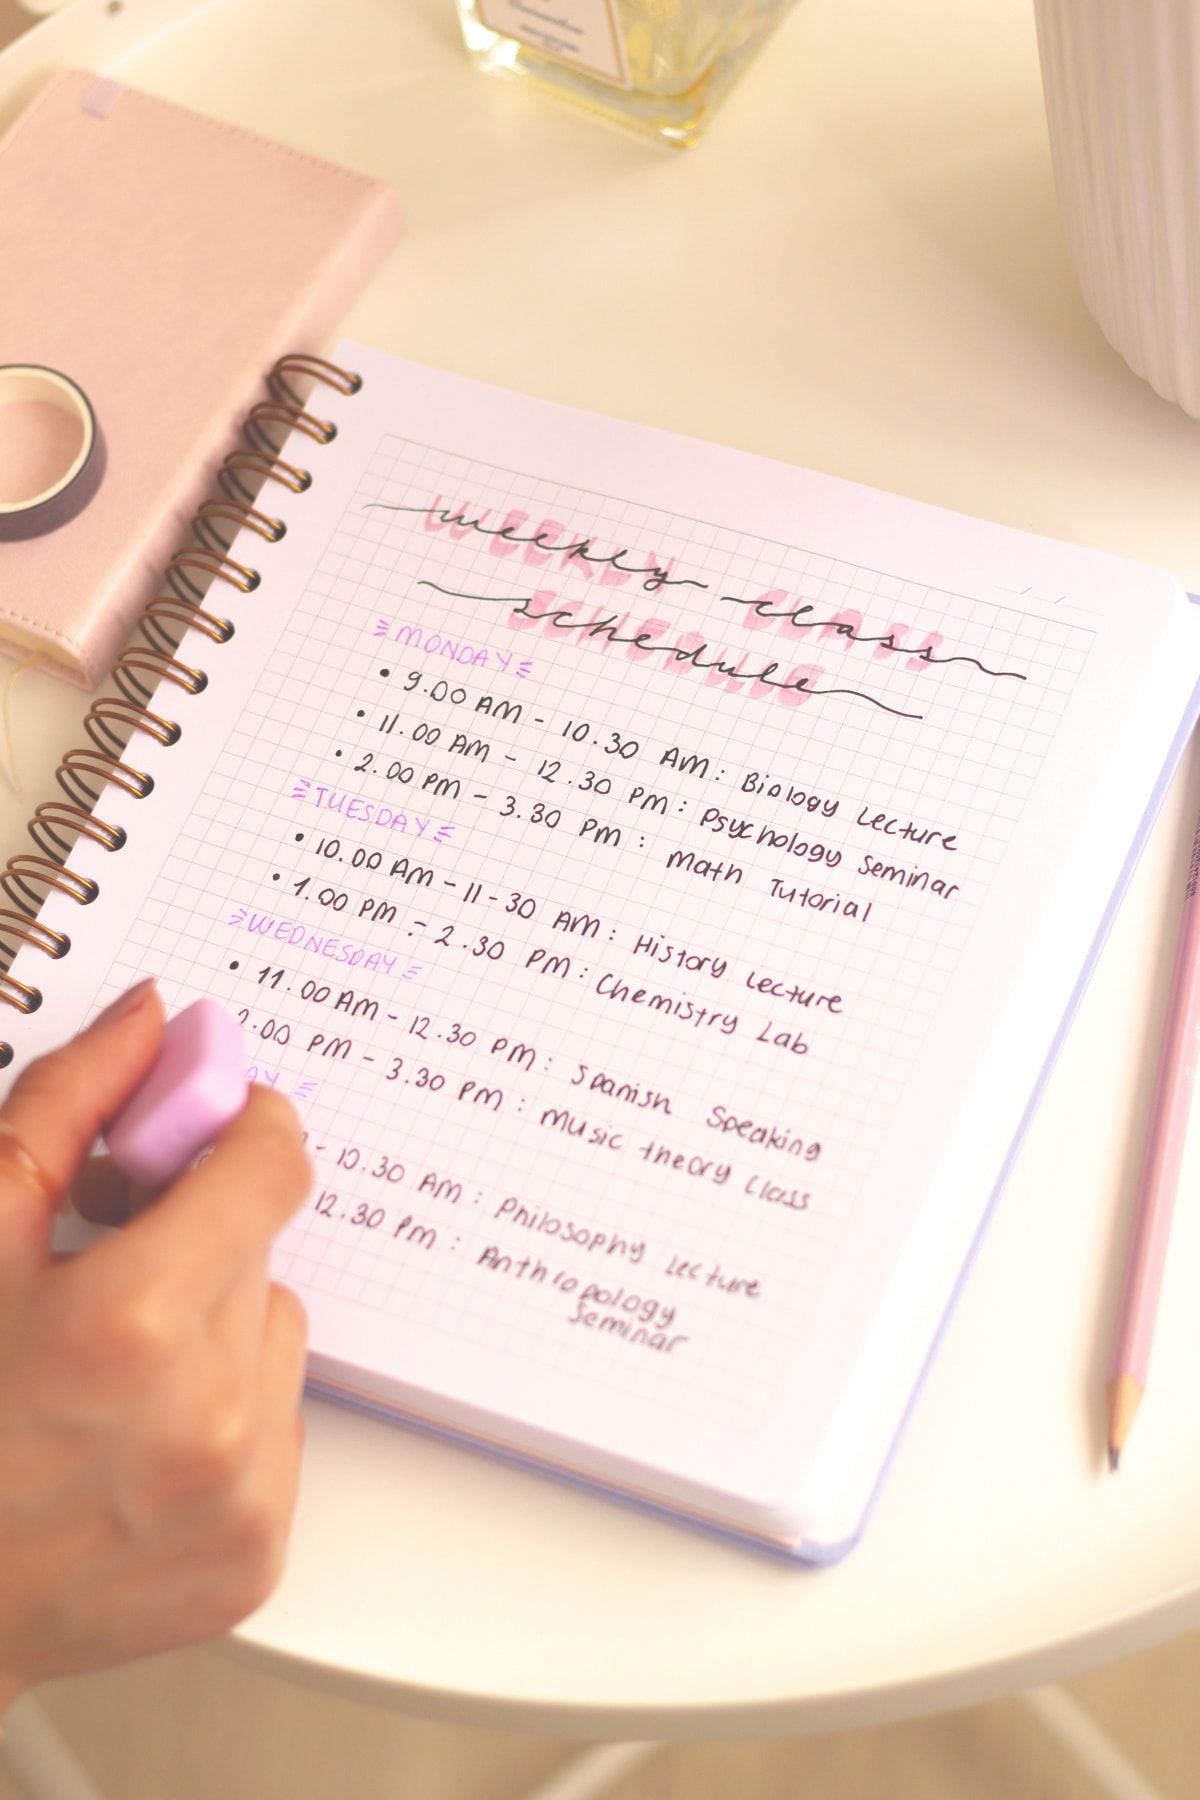 weekly class
schedule
MONDAY
• 9.00 AM - 10.30 AM: Biology Lecture
• 11.00 AM - 12.30 PM: Psychology Seminar
• 2.00 PM - 3.30 PM: Math Tutorial
TUESDAY
• 10.00 AM - 11-30 AM: History Lecture
• 1.00 PM - 2.30 PM: Chemistry Lab
WEDNESDAY
• 11.00 AM - 12.30 PM: Spanish Speaking
2.00 PM - 3.30 PM: Music theory Class
AY
- 10.30 AM: Philosophy Lecture
12.30 PM: Anthropology
Seminar